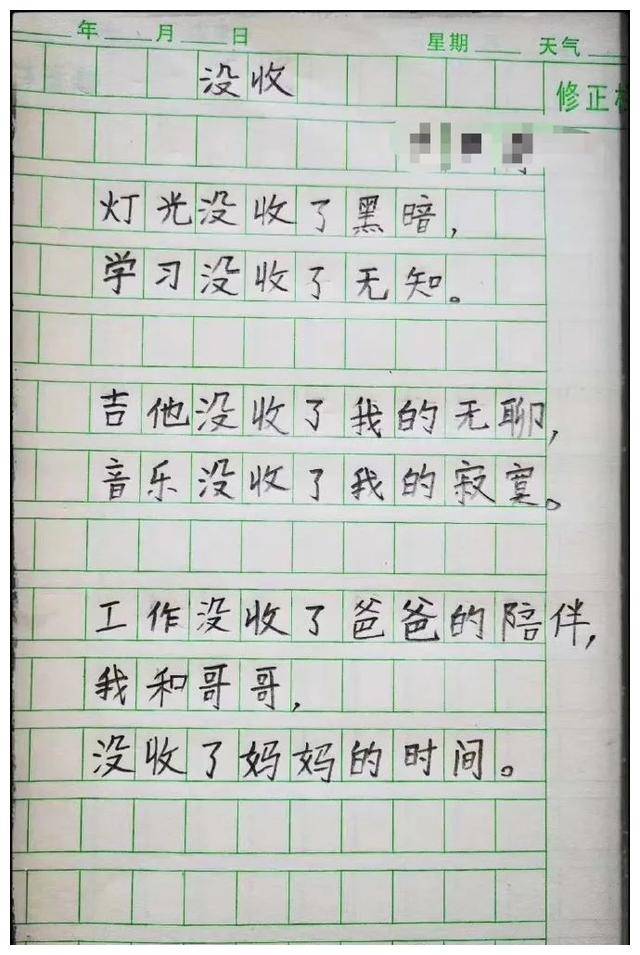 年 月 日 星期 天气
没收
修正
灯光没收了黑暗，
学习没收了无知。
吉他没收了我的无聊，
音乐没收了我的寂寞。
工作没收了爸爸的陪伴，
我和哥哥，
没收了妈妈的时间。